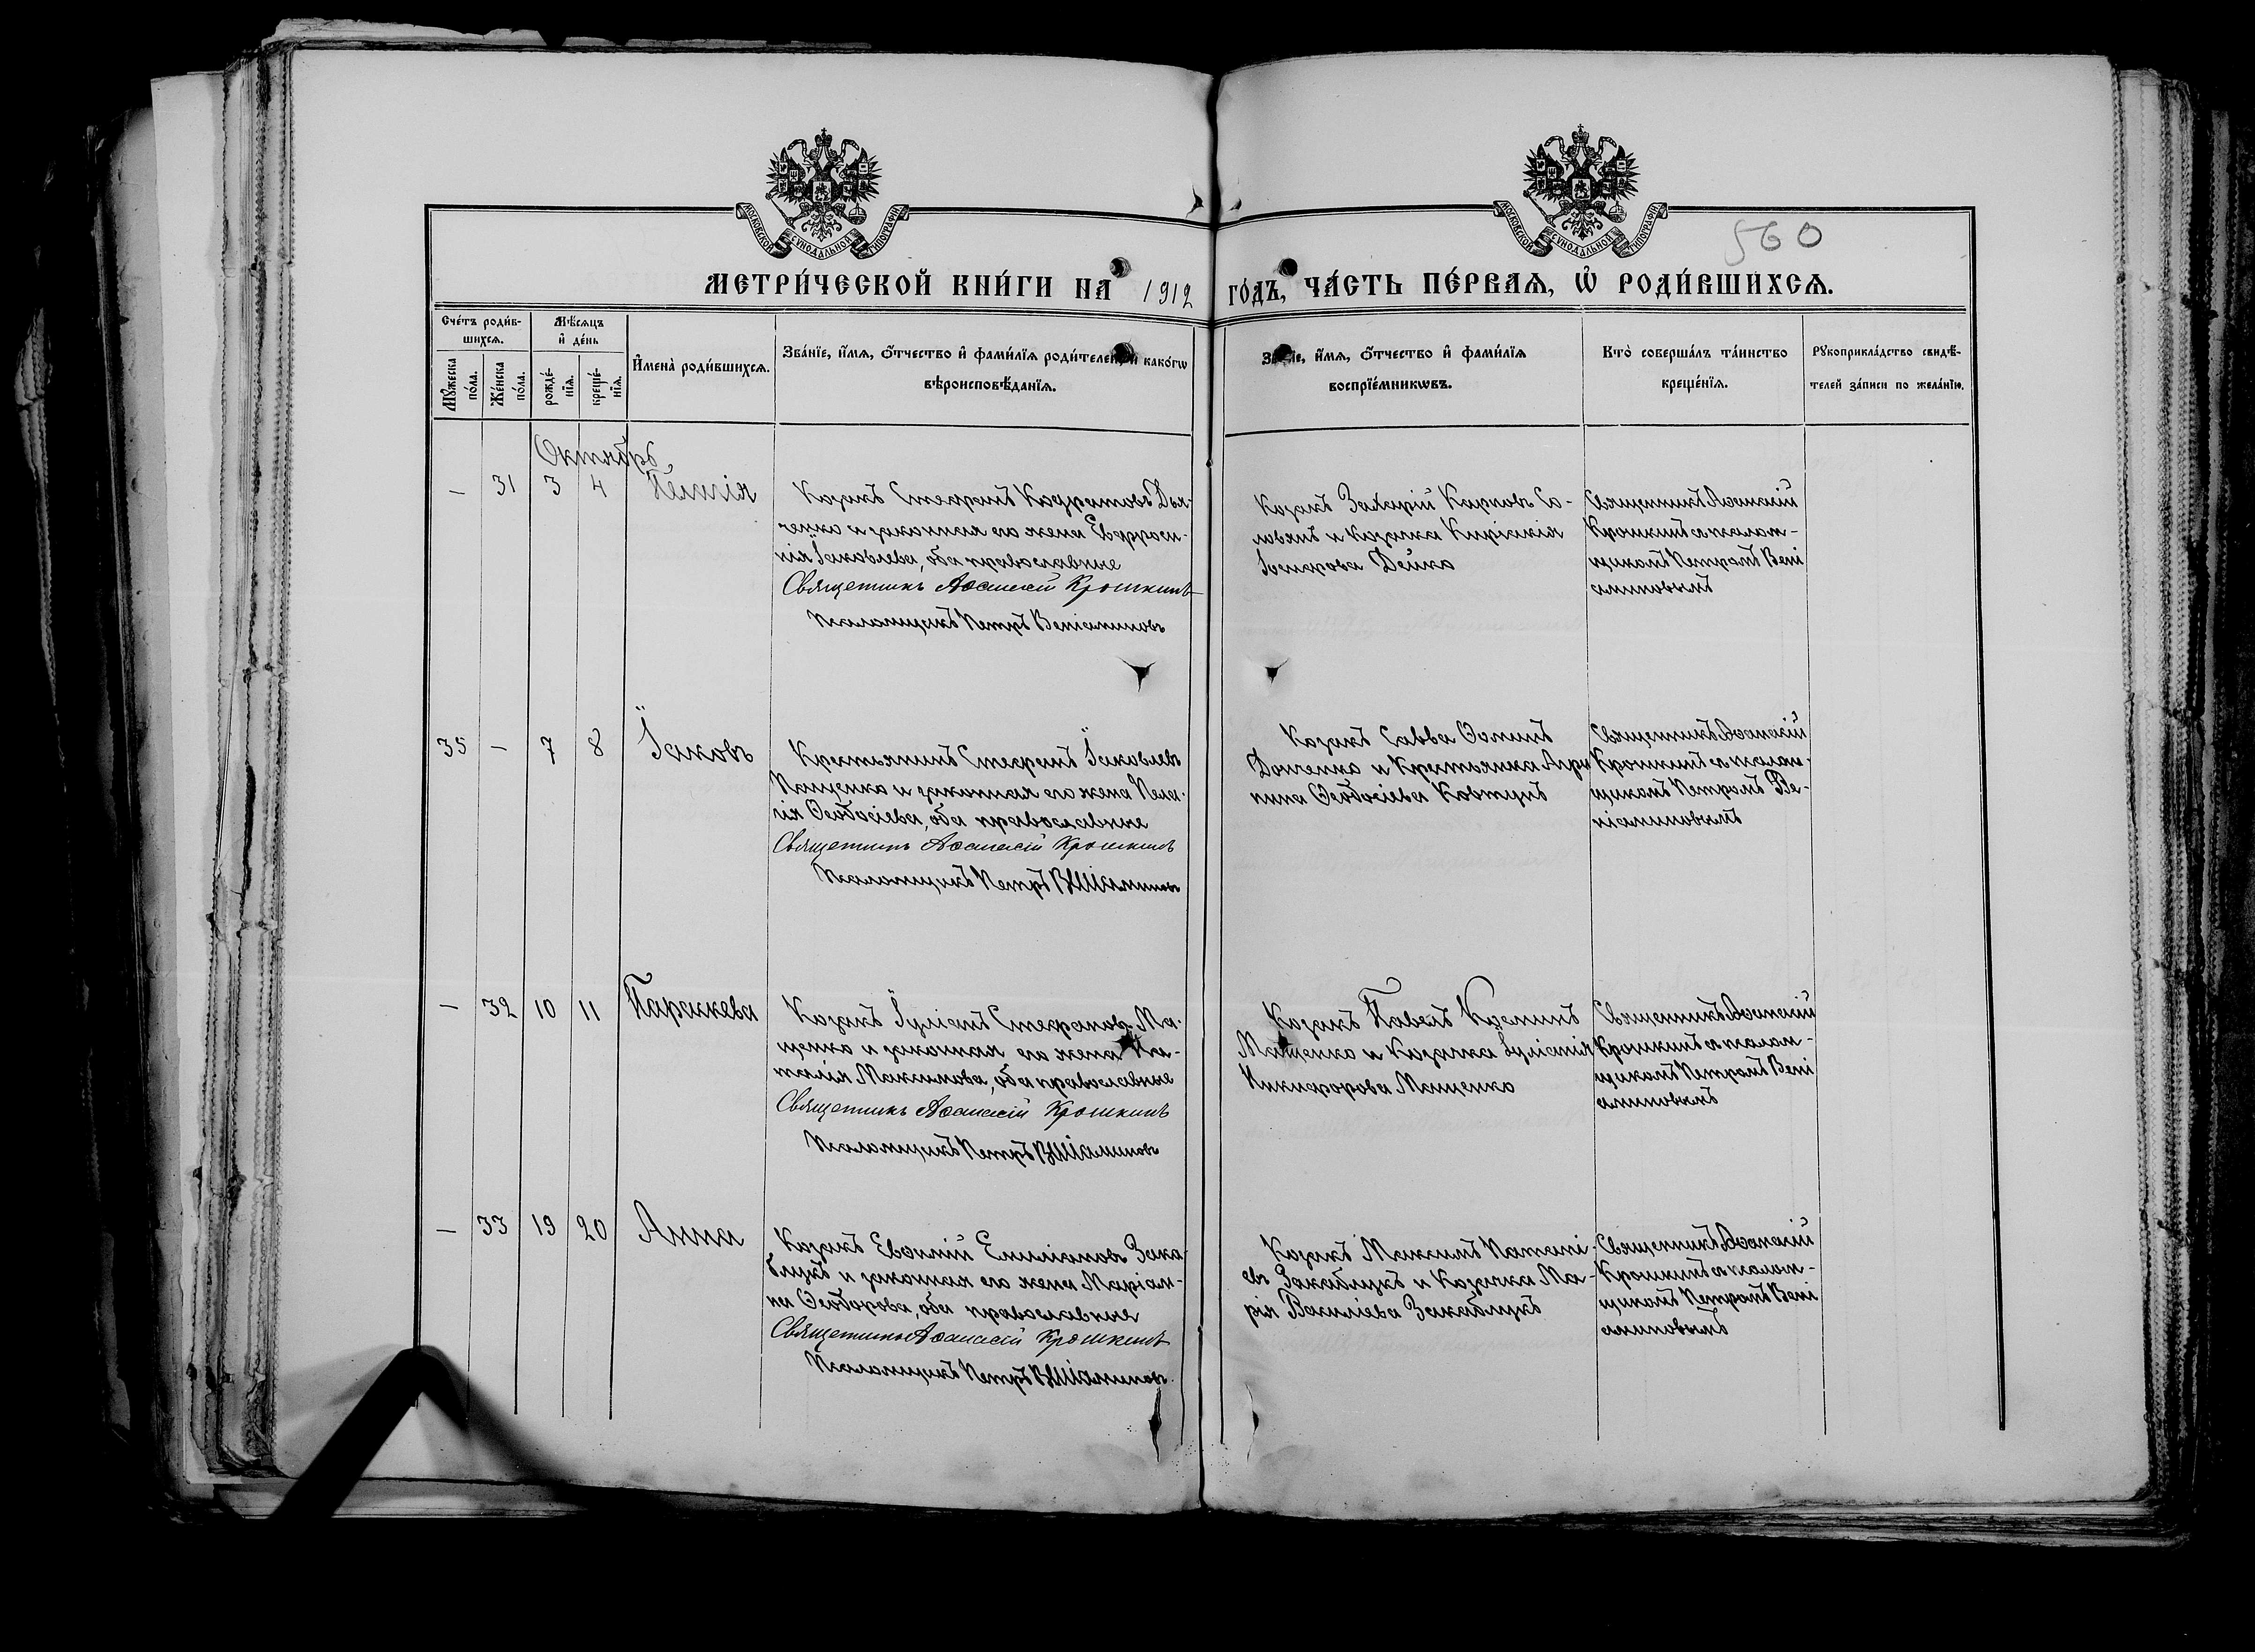 МОСКОВСКОЙ СУНОДАЛЬНОЙ ТИПОГРАФІИ
МОСКОВСКОЙ СУНОДАЛЬНОЙ ТИПОГРАФІИ
560
МЕТРИ́ЧЕСКОЙ КНИ́ГИ НА 1912 ГО́ДЪ, ЧА́СТЬ ПЕ́РВАѦ, Ѡ҆ РОДИ́ВШИХСѦ.
Сче́тъ роди́в-
шихсѧ.
Мꙋ́жеска по́ла.
Же́нска по́ла.
Мѣ́сѧцъ
и҆ де́нь
рожде́-
нїѧ.
креще́-
нїѧ.
И҆мена̀ роди́вшихсѧ.
Зва́нїе, и҆́мѧ, ѻ҆́тчество и҆ фами́лїѧ роди́телей, и҆ како́гѡ
вѣроисповѣ́данїѧ.
Зва́нїе, и҆́мѧ, ѻ҆́тчество и҆ фами́лїѧ
воспрїе́мникѡвъ.
Кто̀ соверша́лъ та́инство
креще́нїѧ.
Рꙋкоприкла́дство свидѣ́-
телей за́писи по жела́нїю.
Октябрь
— 31 3 4 Пелагія
Козакъ Стефанъ Кодратовъ Дья-
ченко и законная его жена Евфроси-
нія Іаковлева, оба православные
Священникъ Аѳанасій Крошкинъ
Псаломщикъ Петръ Веніаминовъ
Козакъ Захарій Карповъ Со-
ловянъ и Козачка Киріакія
Іосифова Дейко
Священникъ Аѳанасій
Крошкинъ съ псалом-
щикомъ Петромъ Вені
аминовымъ
35 — 7 8 Іаковъ
Крестьянинъ Стефанъ Іаковлевъ
Пащенко и законная его жена Пела-
гія Ѳеодосіева, оба православные
Священникъ Аѳанасій Крошкинъ
Псаломщикъ Петръ Веніаминовъ
Козакъ Савва Ѳоминъ
Донченко и Крестьянка Агри
пина Ѳеодосіева Ковтунъ
Священникъ Аѳанасій
Крошкинъ съ псалом-
щикомъ Петромъ Ве-
ніаминовымъ
— 32 10 11 Параскева
Козакъ Іуліанъ Стефановъ Ма-
щенко и законная его жена На-
талія Максимова, оба православные
Священникъ Аѳанасій Крошкинъ
Псаломщикъ Петръ Веніаминовъ
Козакъ Павелъ Козминъ
Мащенко и Козачка Іуліанія
Никифорова Мащенко
Священникъ Аѳанасій
Крошкинъ съ псалом-
щикомъ Петромъ Вені
аминовымъ
— 33 19 20 Анна
Козакъ Евѳимій Емиліановъ Зака
блукъ и законная его жена Маріам-
на Ѳеодорова, оба православные
Священникъ Аѳанасій Крошкинъ
Псаломщикъ Петръ Веніаминовъ.
Козакъ Максимъ Матѳі-
евъ Закаблукъ и Козачка Ма-
рія Василіева Закаблукъ
Священникъ Аѳанасій
Крошкинъ съ псалом-
щикомъ Петромъ Вені
аминовымъ